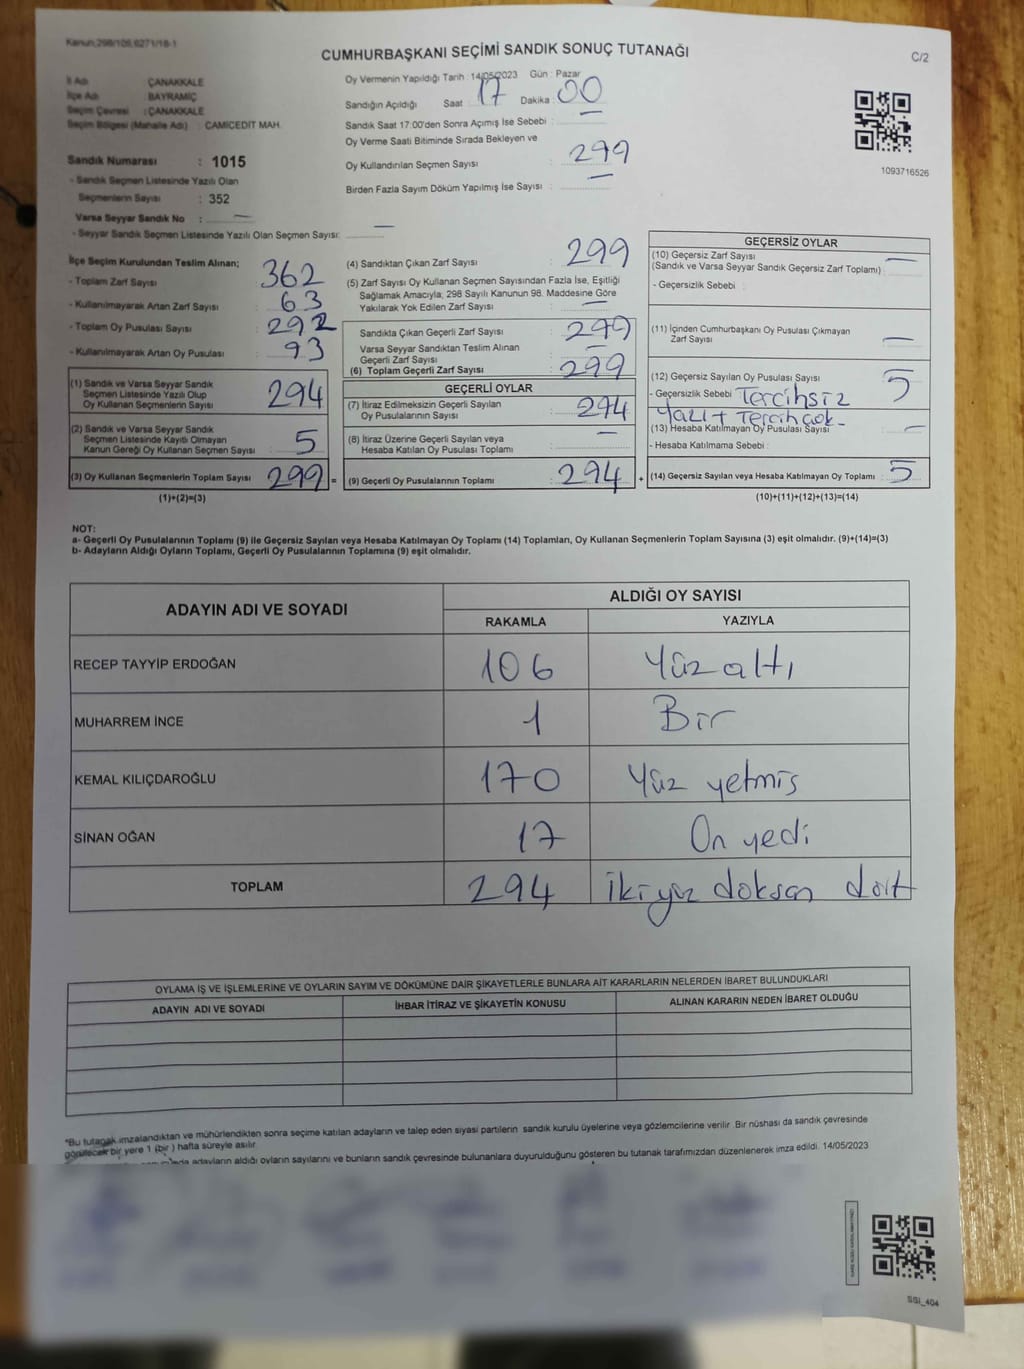 Kanun:298/105,6271/18-1
CUMHURBAŞKANI SEÇİMİ SANDIK SONUÇ TUTANAĞI
C/2
İl Adı : ÇANAKKALE
İlçe Adı : BAYRAMİÇ
Seçim Çevresi : ÇANAKKALE
Seçim Bölgesi (Mahalle Adı) : CAMİCEDİT MAH.
Sandık Numarası : 1015
- Sandık Seçmen Listesinde Yazılı Olan
Seçmenlerin Sayısı : 352
Varsa Seyyar Sandık No : —
- Seyyar Sandık Seçmen Listesinde Yazılı Olan Seçmen Sayısı: —
Oy Vermenin Yapıldığı Tarih : 14/05/2023 Gün : Pazar
Sandığın Açıldığı Saat 17 Dakika : 00
Sandık Saat 17:00'den Sonra Açımış İse Sebebi : —
Oy Verme Saati Bitiminde Sırada Bekleyen ve
Oy Kullandırılan Seçmen Sayısı : 299
Birden Fazla Sayım Döküm Yapılmış İse Sayısı : —
1093716526
İlçe Seçim Kurulundan Teslim Alınan;
- Toplam Zarf Sayısı : 362
- Kullanılmayarak Artan Zarf Sayısı : 63
- Toplam Oy Pusulası Sayısı : 292
- Kullanılmayarak Artan Oy Pusulası : 93
(1) Sandık ve Varsa Seyyar Sandık
Seçmen Listesinde Yazılı Olup
Oy Kullanan Seçmenlerin Sayısı : 294
(2) Sandık ve Varsa Seyyar Sandık
Seçmen Listesinde Kayıtlı Olmayan
Kanun Gereği Oy Kullanan Seçmen Sayısı : 5
(3) Oy Kullanan Seçmenlerin Toplam Sayısı : 299 =
(1)+(2)=(3)
(4) Sandıktan Çıkan Zarf Sayısı : 299
(5) Zarf Sayısı Oy Kullanan Seçmen Sayısından Fazla İse, Eşitliği
Sağlamak Amacıyla; 298 Sayılı Kanunun 98. Maddesine Göre
Yakılarak Yok Edilen Zarf Sayısı : —
Sandıkta Çıkan Geçerli Zarf Sayısı : 299
Varsa Seyyar Sandıktan Teslim Alınan
Geçerli Zarf Sayısı : —
(6) Toplam Geçerli Zarf Sayısı : 299
GEÇERLİ OYLAR
(7) İtiraz Edilmeksizin Geçerli Sayılan
Oy Pusulalarının Sayısı : 294
(8) İtiraz Üzerine Geçerli Sayılan veya
Hesaba Katılan Oy Pusulası Toplamı : —
(9) Geçerli Oy Pusulalarının Toplamı : 294 +
GEÇERSİZ OYLAR
(10) Geçersiz Zarf Sayısı
(Sandık ve Varsa Seyyar Sandık Geçersiz Zarf Toplamı) : —
- Geçersizlik Sebebi :
(11) İçinden Cumhurbaşkanı Oy Pusulası Çıkmayan
Zarf Sayısı : —
(12) Geçersiz Sayılan Oy Pusulası Sayısı : 5
- Geçersizlik Sebebi Tercihsiz
Yazı + Tercih çok -
(13) Hesaba Katılmayan Oy Pusulası Sayısı : —
- Hesaba Katılmama Sebebi :
(14) Geçersiz Sayılan veya Hesaba Katılmayan Oy Toplamı : 5
(10)+(11)+(12)+(13)=(14)
NOT:
a- Geçerli Oy Pusulalarının Toplamı (9) ile Geçersiz Sayılan veya Hesaba Katılmayan Oy Toplamı (14) Toplamları, Oy Kullanan Seçmenlerin Toplam Sayısına (3) eşit olmalıdır. (9)+(14)=(3)
b- Adayların Aldığı Oyların Toplamı, Geçerli Oy Pusulalarının Toplamına (9) eşit olmalıdır.
ADAYIN ADI VE SOYADI ALDIĞI OY SAYISI
RAKAMLA YAZIYLA
RECEP TAYYİP ERDOĞAN 106 Yüz altı
MUHARREM İNCE 1 Bir
KEMAL KILIÇDAROĞLU 170 Yüz yetmiş
SİNAN OĞAN 17 On yedi
TOPLAM 294 iki yüz doksan dört
OYLAMA İŞ VE İŞLEMLERİNE VE OYLARIN SAYIM VE DÖKÜMÜNE DAİR ŞİKAYETLERLE BUNLARA AİT KARARLARIN NELERDEN İBARET BULUNDUKLARI
ADAYIN ADI VE SOYADI İHBAR İTİRAZ VE ŞİKAYETİN KONUSU ALINAN KARARIN NEDEN İBARET OLDUĞU
"Bu tutanak imzalandıktan ve mühürlendikten sonra seçime katılan adayların ve talep eden siyasi partilerin sandık kurulu üyelerine veya gözlemcilerine verilir. Bir nüshası da sandık çevresinde
görülecek bir yere 1 (bir ) hafta süreyle asılır.
adayların aldığı oyların sayılarını ve bunların sandık çevresinde bulunanlara duyurulduğunu gösteren bu tutanak tarafımızdan düzenlenerek imza edildi. 14/05/2023
SSI_404